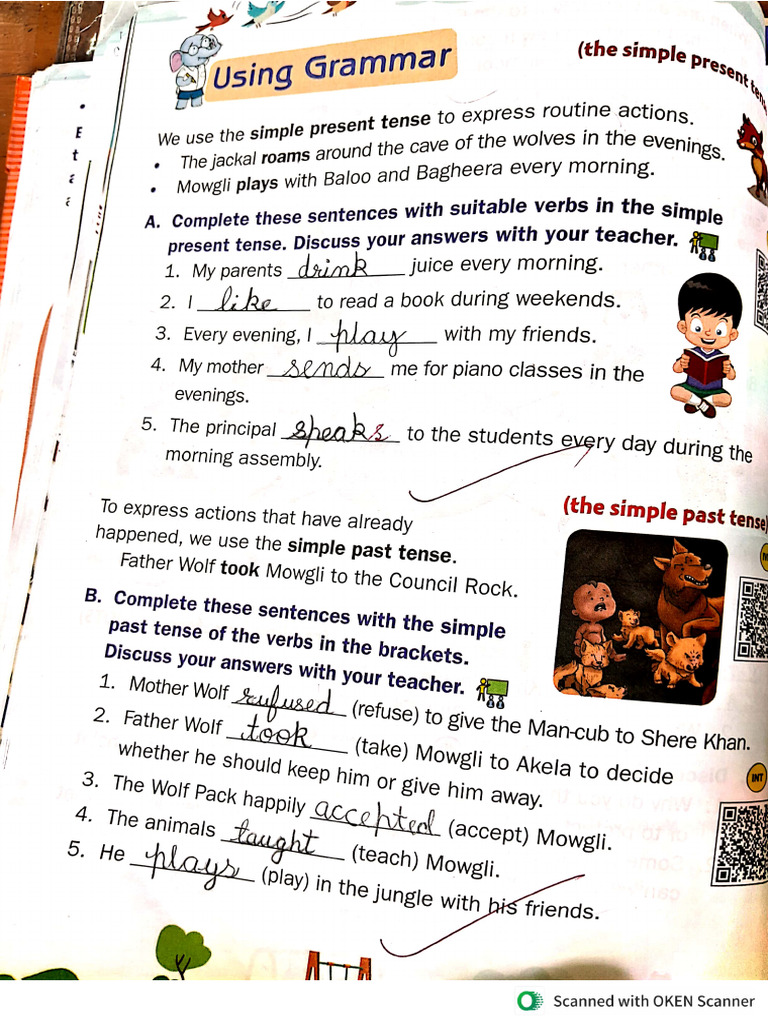 Using Grammar
(the simple present ten
We use the simple present tense to express routine actions.
• The jackal roams around the cave of the wolves in the evenings.
• Mowgli plays with Baloo and Bagheera every morning.
A. Complete these sentences with suitable verbs in the simple
present tense. Discuss your answers with your teacher.
1. My parents drink juice every morning.
2. I like to read a book during weekends.
3. Every evening, I play with my friends.
4. My mother sends me for piano classes in the
evenings.
5. The principal speaks to the students every day during the
morning assembly.
(the simple past tense)
To express actions that have already
happened, we use the simple past tense.
Father Wolf took Mowgli to the Council Rock.
B. Complete these sentences with the simple
past tense of the verbs in the brackets.
Discuss your answers with your teacher.
1. Mother Wolf refused (refuse) to give the Man-cub to Shere Khan.
2. Father Wolf took (take) Mowgli to Akela to decide
whether he should keep him or give him away.
3. The Wolf Pack happily accepted (accept) Mowgli.
4. The animals taught (teach) Mowgli.
5. He plays (play) in the jungle with his friends.
INT
Scanned with OKEN Scanner